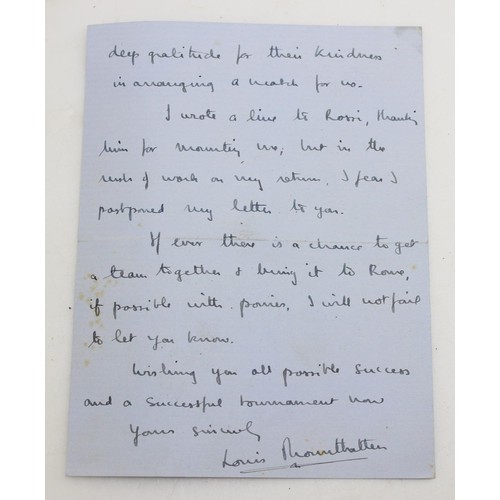 deep gratitude for their kindness
in arranging a match for us.
I wrote a line to Rossi, thanking
him for mounting us; but in the
rush of work on my return, I fear I
postponed my letter to you.
If ever there is a chance to get
a team together & bring it to Rome,
if possible with ponies, I will not fail
to let you know.
Wishing you all possible success
and a successful tournament now
Yours sincerely
Louis Mountbatten